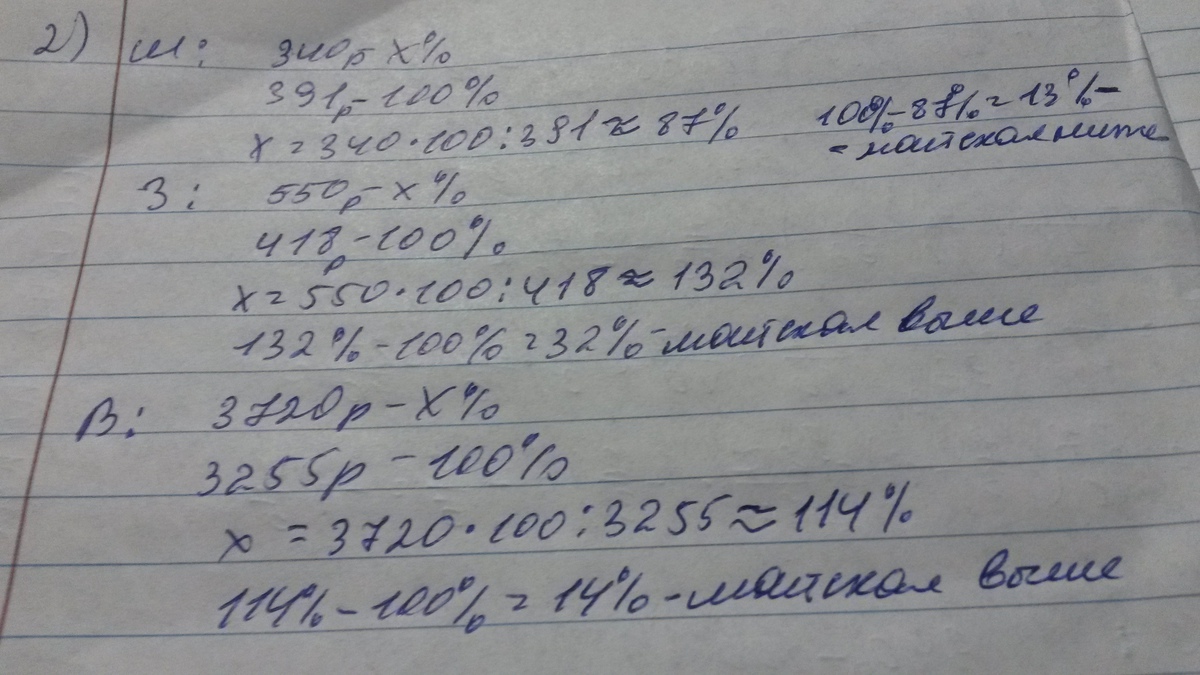 2) ш: 340р - х%
391р - 100%
х = 340·100:391 ≈ 87% 100% - 87% = 13% -
- майская ниже
З: 550р - х%
418р - 100%
х = 550·100:418 ≈ 132%
132% - 100% = 32% - майская выше
В: 3720р - х%
3255р - 100%
х = 3720·100:3255 ≈ 114%
114% - 100% = 14% - майская выше